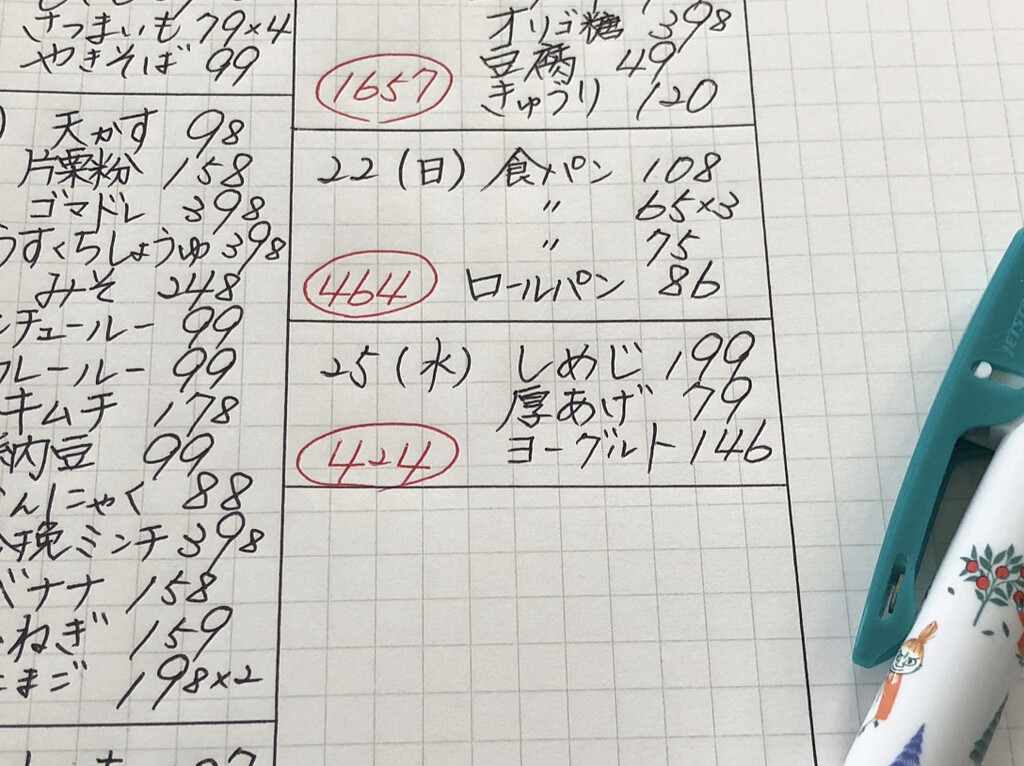 さつまいも 79×4
やきそば 99
天かす 98
片栗粉 158
ゴマドレ 398
うすくちしょうゆ 398
みそ 248
シチュールー 99
カレールー 99
キムチ 178
納豆 99
こんにゃく 88
合挽ミンチ 398
バナナ 158
ねぎ 159
たまご 198×2
オリゴ糖 398
豆腐 49
1657 きゅうり 120
22(日) 食パン 108
〃 65×3
〃 75
464 ロールパン 86
25(水) しめじ 199
厚あげ 79
424 ヨーグルト 146
JETSTREAM